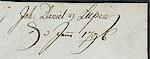 Joh. Daniel v Lupin
3 Juni 1796